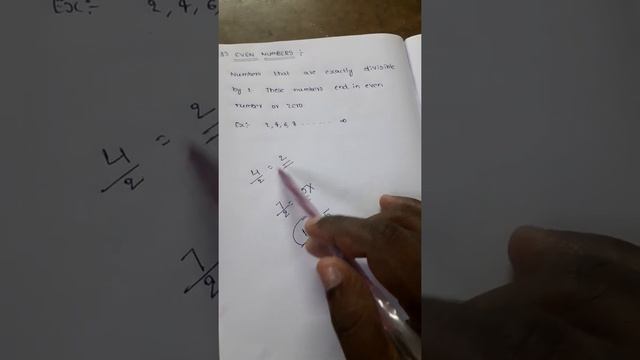 3) EVEN NUMBERS :-
Numbers that are exactly divisible
by 2. These numbers end in even
number or zero.
Ex:- 2, 4, 6, 8 ........... ∞
4/2 = 2
7/2 =